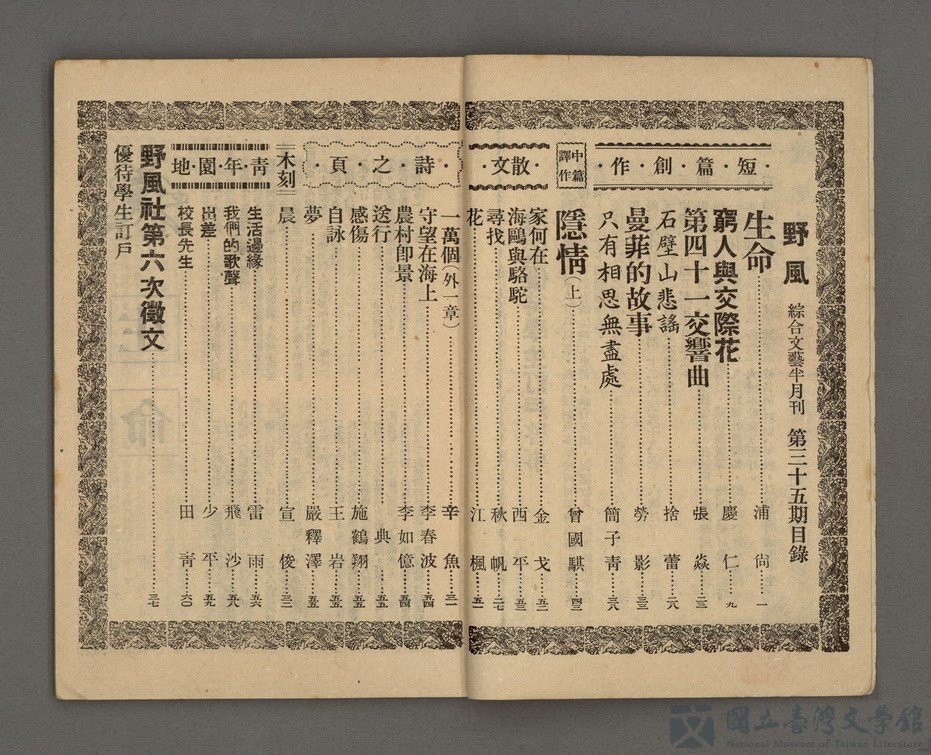 野風 綜合文藝半月刊 第三十五期目錄
·短·篇·創·作·
生命……浦尙……一
窮人與交際花……慶仁……九
第四十一交響曲……張焱……二三
石壁山悲謠……捨蕾……二八
曼菲的故事……勞影……三三
只有相思無盡處……簡子靑……三八
中篇譯作
隱情(上)……曾國騏……四三
·散文·
家何在……金戈……五二
海鷗與駱駝……西平……五三
尋找……秋帆……二七
花……江楓……五一
·詩·之·頁·
一萬個(外一章)……辛魚……三一
守望在海上……李春波……五四
農村卽景……李如億……五四
送行……典……五五
感傷……施鶴翔……五五
自詠……王岩……五五
夢……嚴釋澤……五五
木刻
晨……宣俊……三二
靑·年·園·地
生活邊緣……雷雨……五六
我們的歌聲……飛沙……五八
出差……少平……五九
校長先生……田靑……六〇
野風社第六次徵文……三七
優待學生訂戶
國立臺灣文學館
National Museum of Taiwan Literature